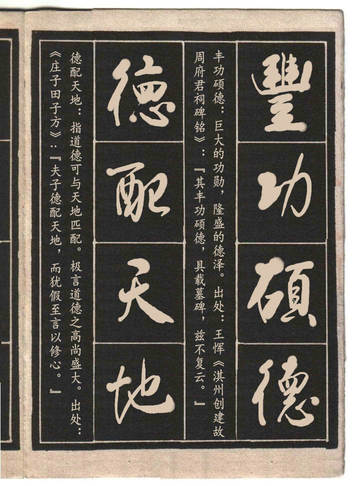 豐功碩德
丰功硕德：巨大的功勋，隆盛的德泽。出处：王恽《淇州创建故
周府君祠碑铭》：『其丰功硕德，具载墓碑，兹不复云。』
德配天地
德配天地：指道德可与天地匹配。极言道德之高尚盛大。出处：
《庄子田子方》：『夫子德配天地，而犹假至言以修心。』